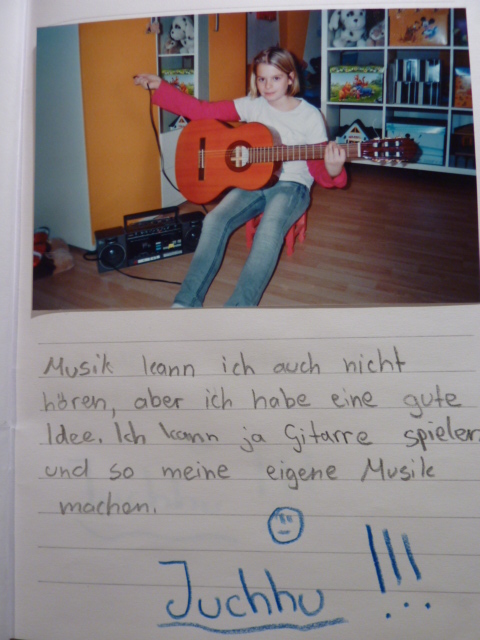 Musik kann ich auch nicht
hören, aber ich habe eine gute
Idee. Ich kann ja Gitarre spielen
und so meine eigene Musik
machen.
Juchhu !!!